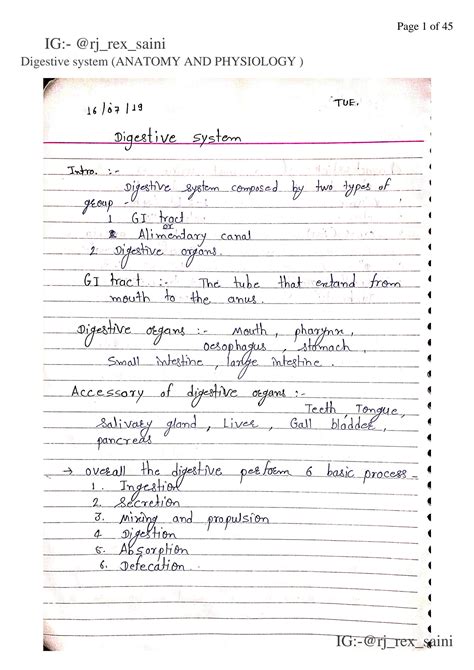 Page 1 of 45
IG:- @rj_rex_saini
Digestive system (ANATOMY AND PHYSIOLOGY )
16/07/19
TUE.
Digestive system
Intro. :-
Digestive system composed by two types of
group -
1 GI tract
or
Alimendary canal
2. Digestive organs.
GI tract :- The tube that extand from
mouth to the anus.
Digestive organs :- Mouth, pharynx,
oesophagus, stomach,
Small intestine, large intestine.
Accessory of digestive organs :-
Teeth, Tongue,
Salivary gland, Liver, Gall bladder,
pancreas
→ overall the digestive perform 6 basic process -
1. Ingestion
2. Secretion
3. Mixing and propulsion
4. Digestion
5. Absorption
6. Defecation.
IG:-@rj_rex_saini